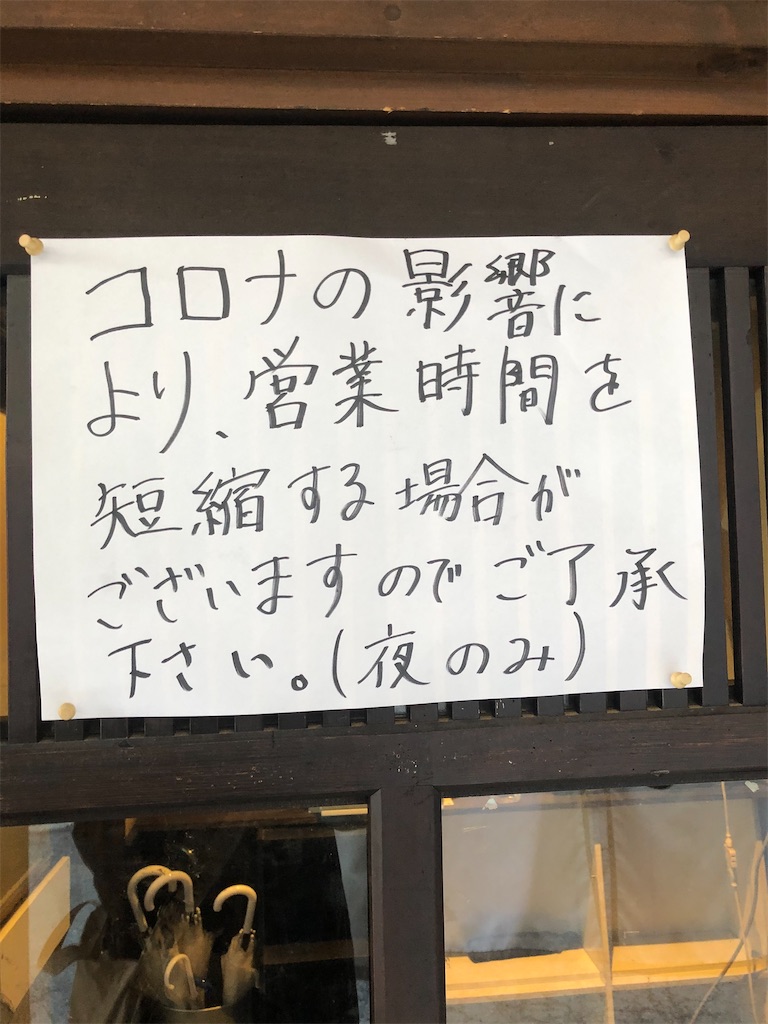 コロナの影響に
より、営業時間を
短縮する場合が
ございますのでご了承
下さい。(夜のみ)